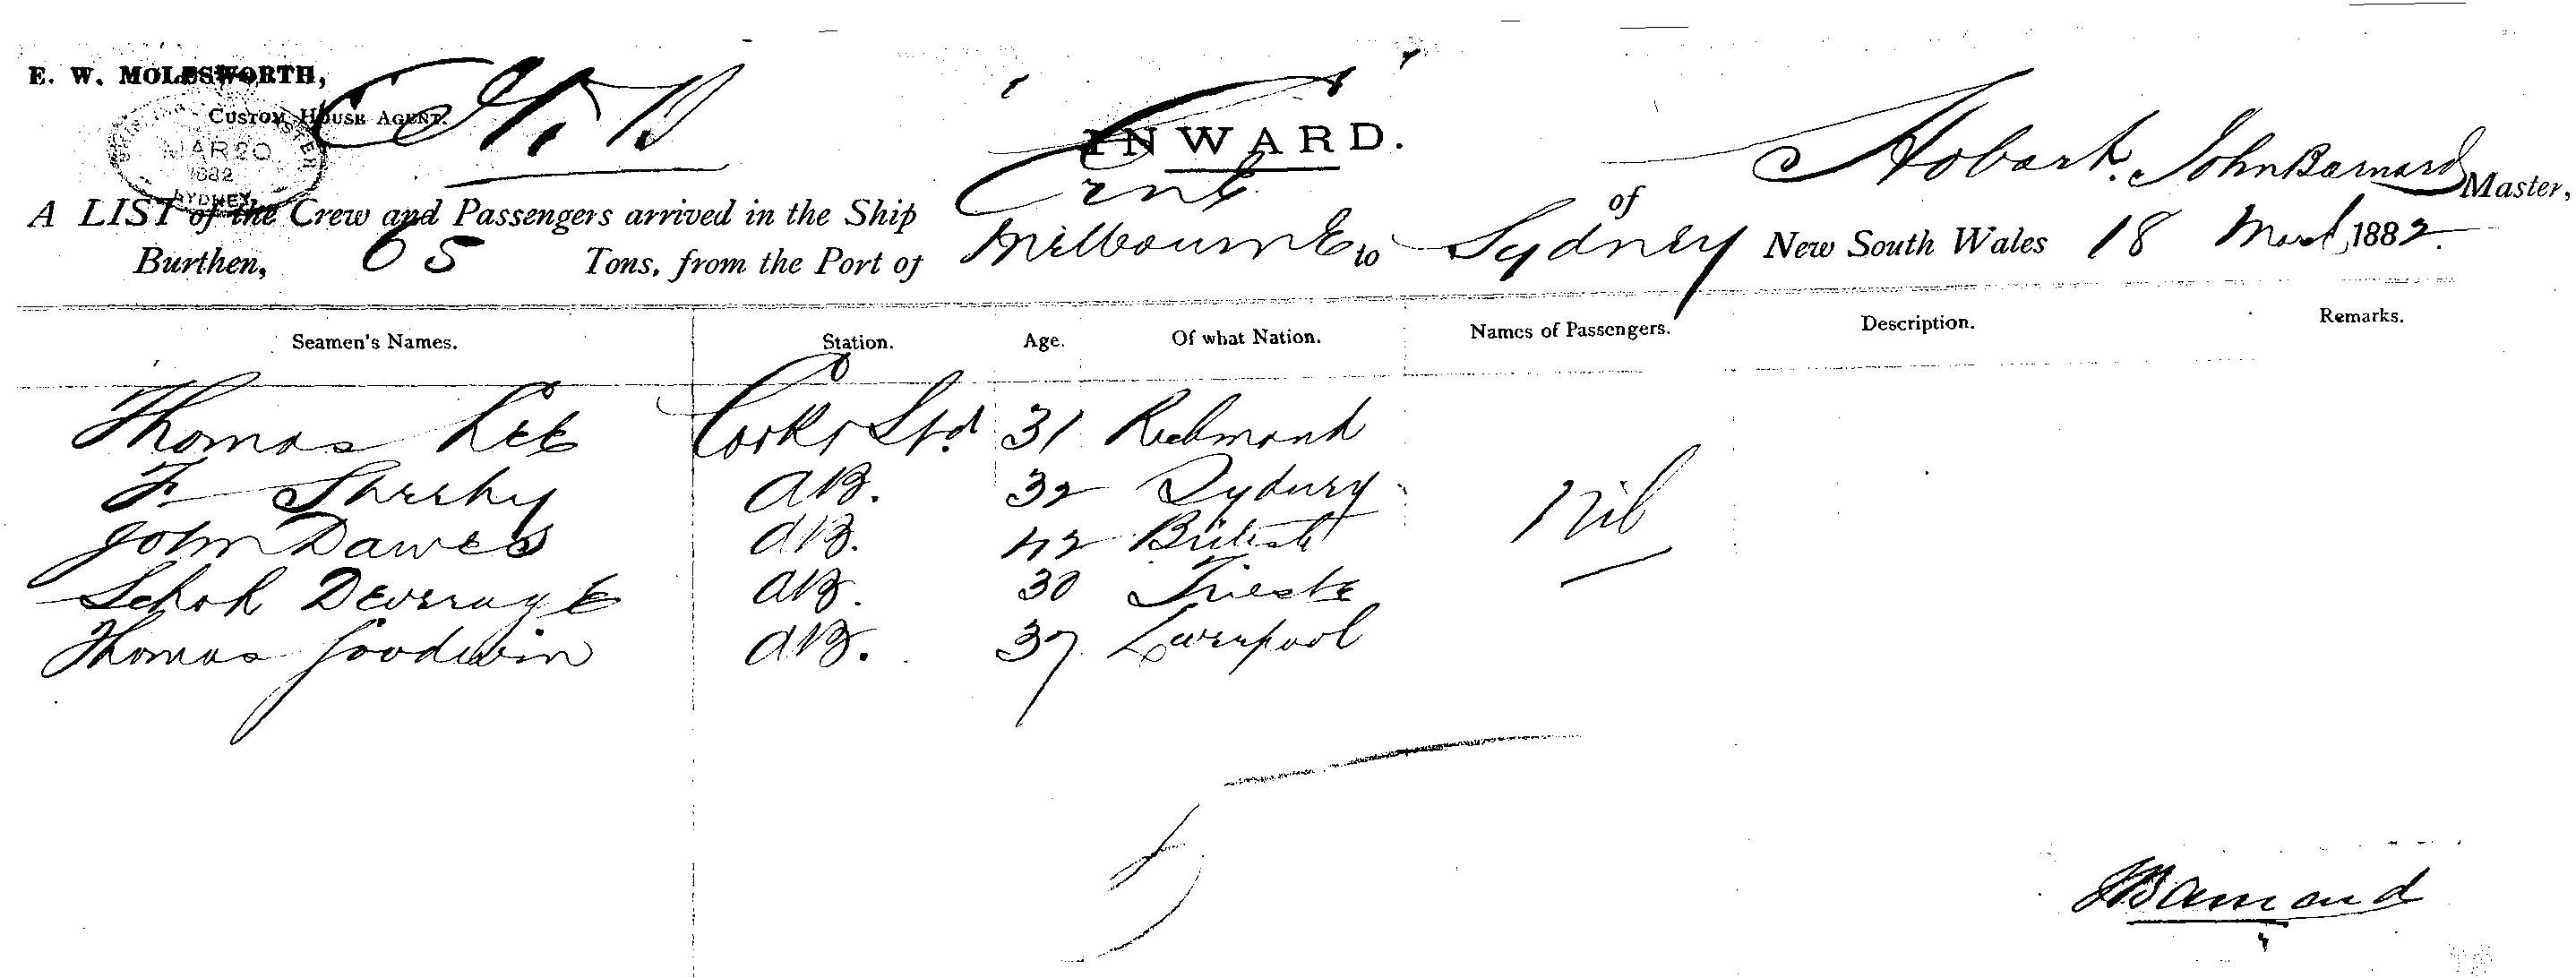 E. W. MOLESWORTH,
CUSTOM HOUSE AGENT.
MAR 20
1882
SYDNEY
INWARD.
A LIST of the Crew and Passengers arrived in the Ship of Hobart. John Barnard Master,
Burthen, 65 Tons, from the Port of Melbourne to Sydney New South Wales 18 March 1882.
Seamen's Names. Station. Age. Of what Nation. Names of Passengers. Description. Remarks.
Thomas Lee Cook & Std. 31 Richmond
F Sheehy AB. 32 Sydney
John Dawes AB. 42 British
AB. 30 Trieste
Thomas Goodwin AB. 37 Liverpool
Nil
5
JBarnard